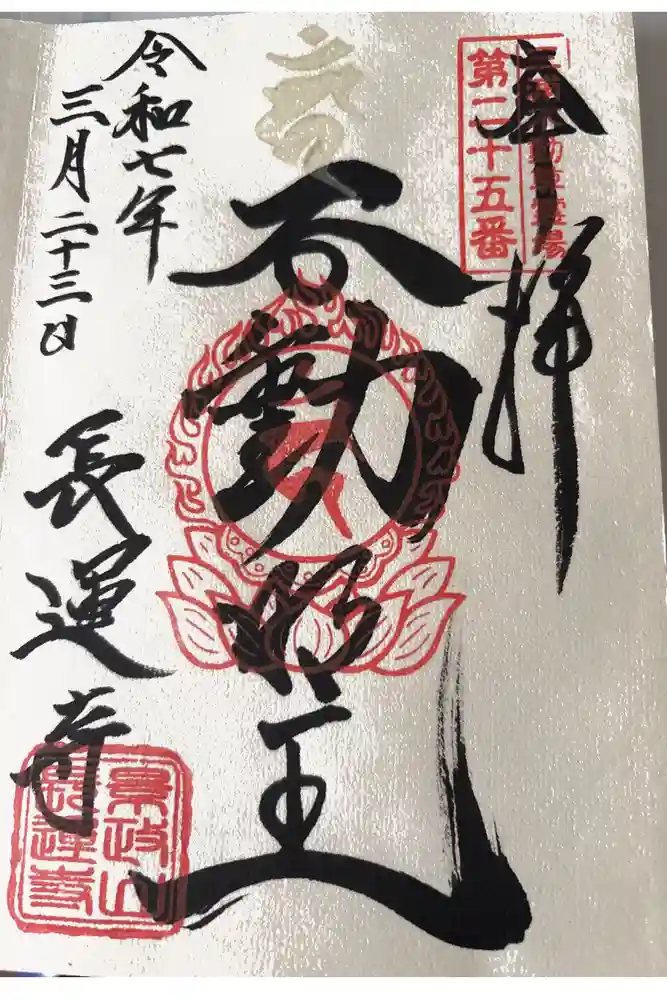 奉拝
第二十五番
不動明王
令和七年
三月二十三日
長運寺